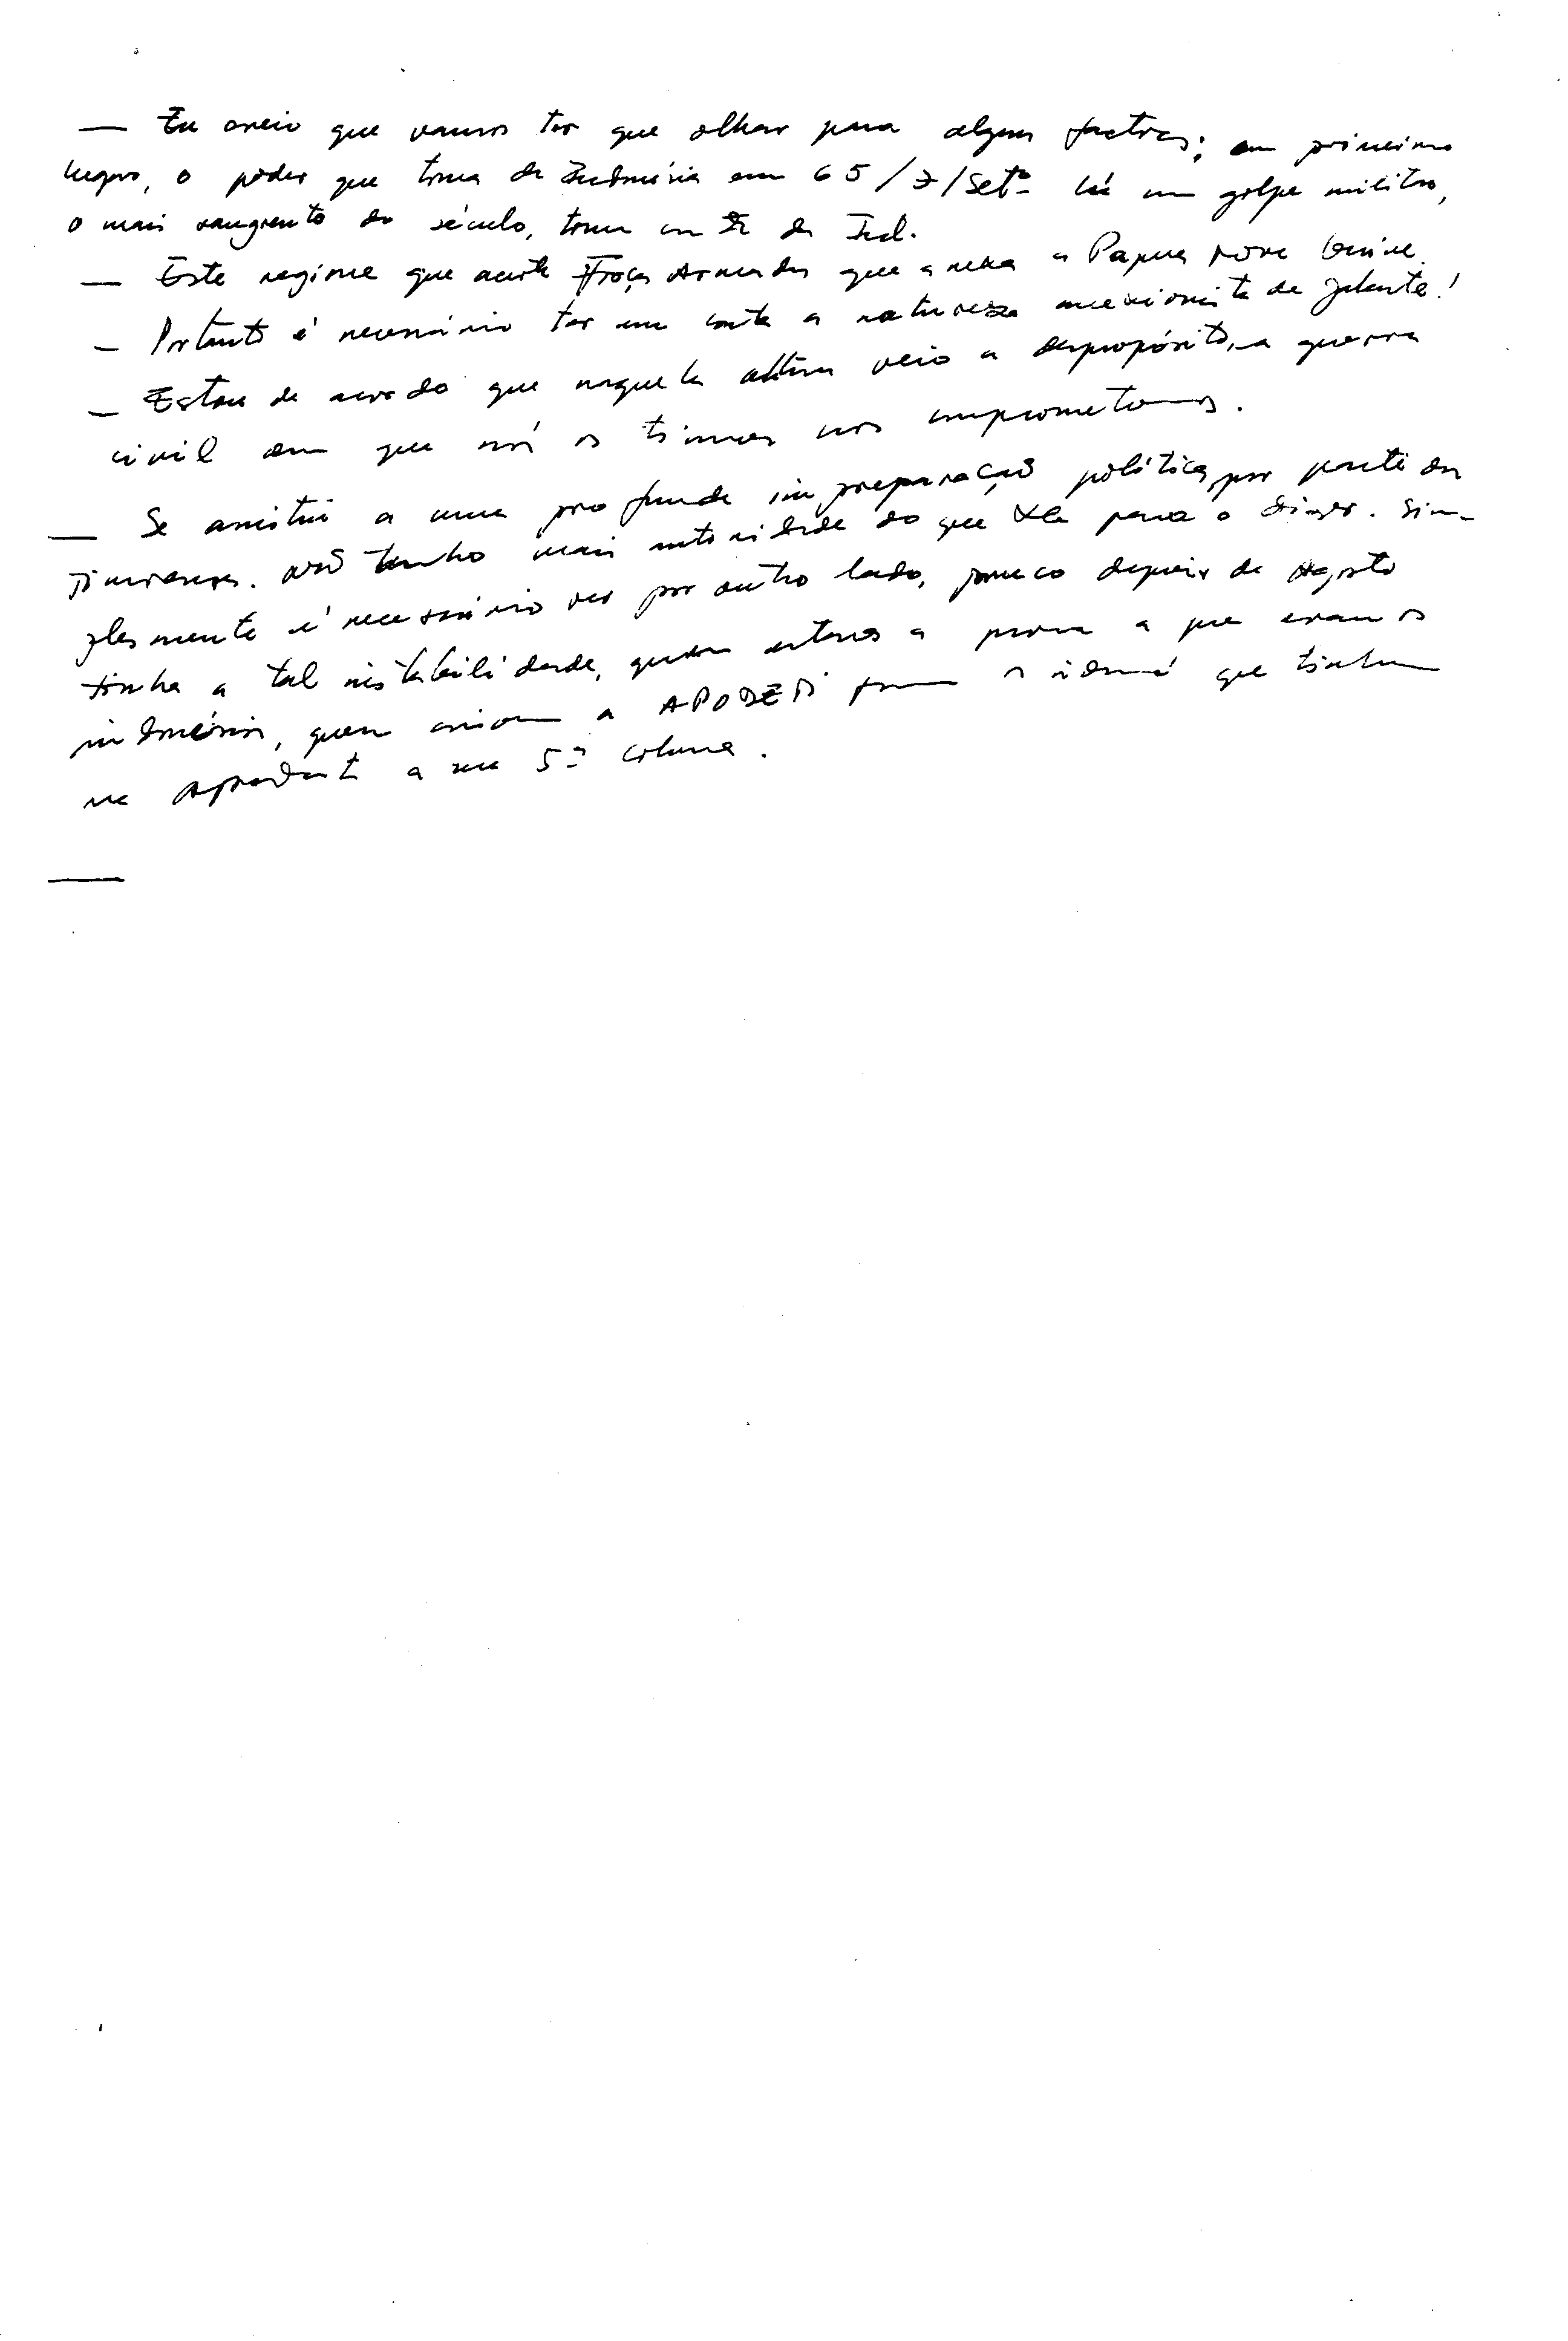 — Eu creio que vamos ter que olhar para alguns factores; em primeiro
lugar, o poder que toma da Indonésia em 65 / 7 / Setº há um golpe militar,
o mais sangrento do século, toma da Ind.
— Este regime que Forças Armadas que anexa a Papua Nova Guine.
— Portanto é necessário ter em conta a natureza anexionista de Jakarta!
— Estou de acordo que naquela altura veio a despropósito, a guerra
civil em que nós os timor nos comprometemos.
— Se assistiu a uma profunda impreparação política, por parte dos
Timorenses. Não tenho mais autoridade do que para o dizer. Sim-
plesmente é necessário ver por outro lado, pouco depois de Agosto
tinha a tal instabilidade, quem a prova a que eram os
indonésios, quem criou a APODETI foram os que tinham
na a sua 5ª coluna.
—